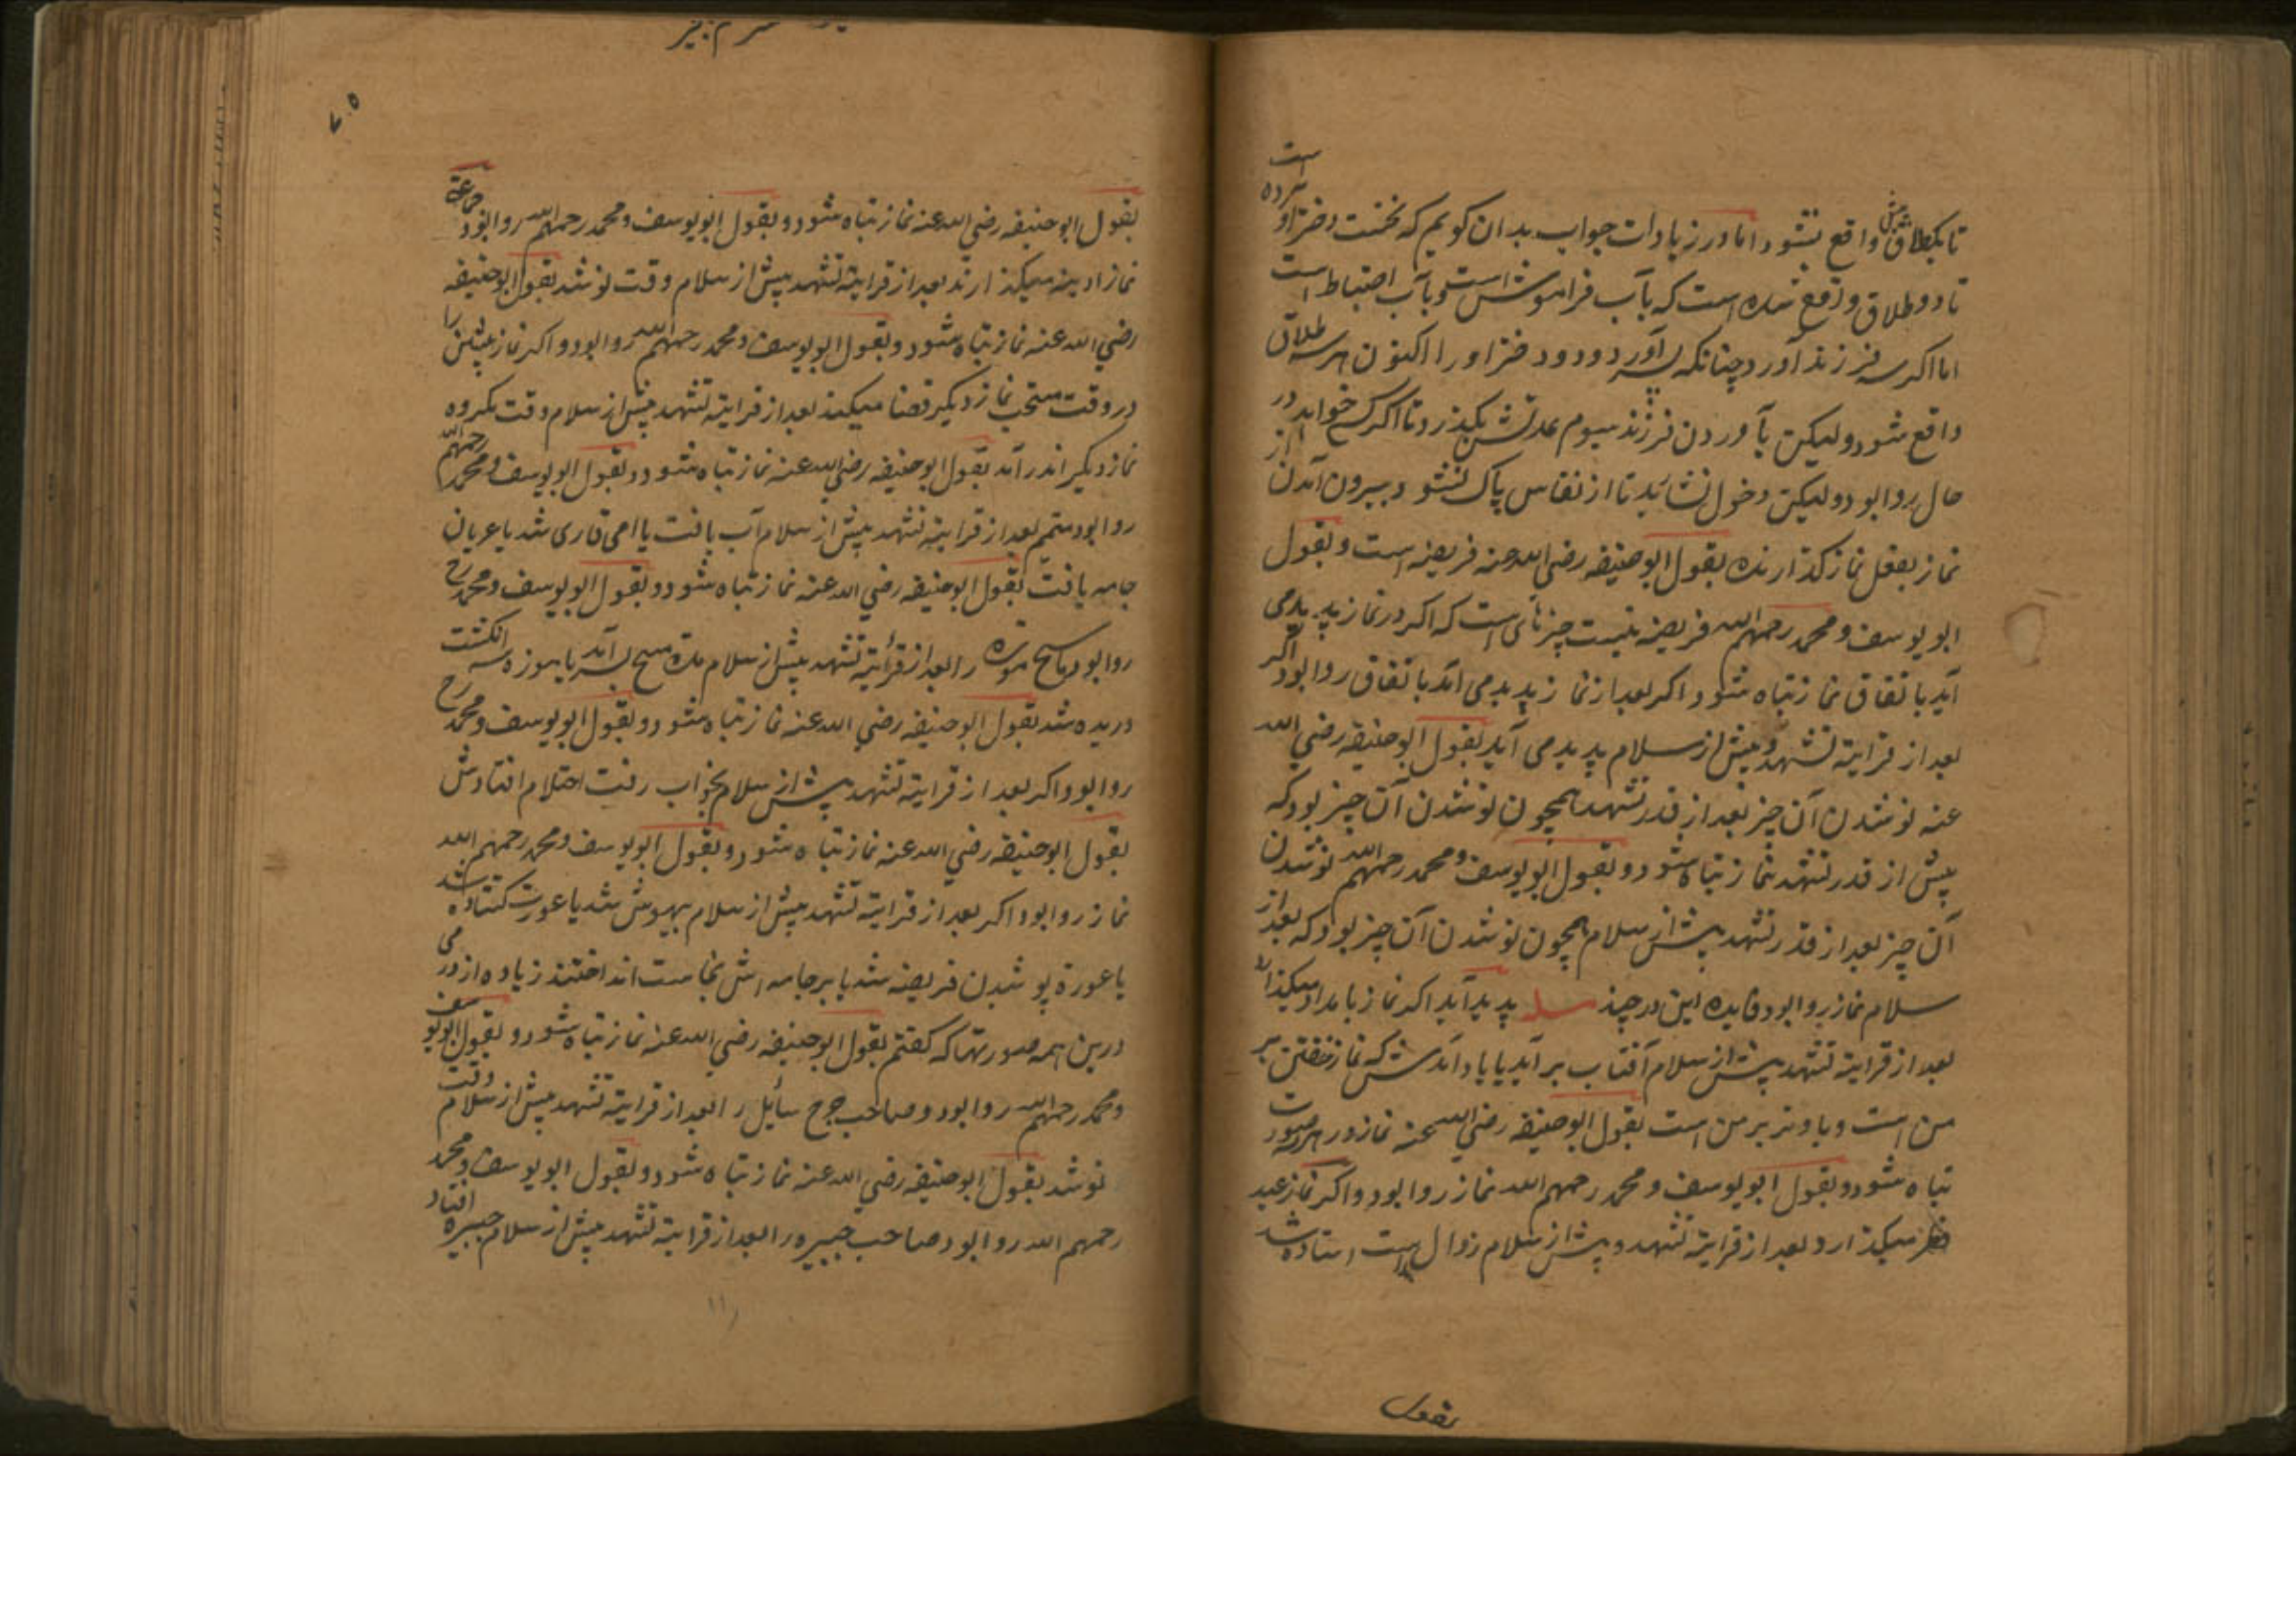 تا یکطلاق بیش واقع نشود اما در زیادات جواب بدان کویم که نخست دختر آورده است
تا دو طلاق واقع شده است که بآب فراموش است و بآب احتیاط است
اما اکر سه فرزند آورد چنانکه پسر آورد و دو دختر او را اکنون هر سه طلاق
واقع شود ولیکن بآوردن فرزند سیوم عدتش بکذرد تا اکر کسی خواهد در
حال روا بود ولیکن دخول نشاید تا از نفاس پاک نشود بیرون آمدن از
نماز بفعل نماز کذارنده بقول ابو حنیفه رضی الله عنه فریضه است و بقول
ابو یوسف و محمد رحمهم الله فریضه نیست چیزهای است که اکر در نماز پدید می
آید باتفاق نماز تباه شود و اکر بعد از نماز پدید می آید باتفاق روا بود اکر
بعد از قرایة تشهد و پیش از سلام پدید می آید بقول ابو حنیفه رضی الله
عنه نو شدن آن چیز بعد از قدر تشهد همچون نو شدن آن چیز بود که
پیش از قدر تشهد نماز تباه شود و بقول ابو یوسف و محمد رحمهم الله نو شدن
آن چیز بعد از قدر تشهد پیش از سلام همچون نو شدن آن چیز بود که بعد از
سلام نماز روا بود فایده این در چند مسله پدید آید اکر نماز بامداد میکذارد
بعد از قرایة تشهد پیش از سلام آفتاب بر آید یا یاد آمدش که نماز خفتن بر
من است و یا وتر بر من است بقول ابو حنیفه رضی الله عنه نماز در هر صورت
تباه شود و بقول ابو یوسف و محمد رحمهم الله نماز روا بود و اکر نماز عید
میکذارد بعد از قرایة تشهد و پیش از سلام زوال است استاده شد
بقول
۷۰۵
بقول ابو حنیفه رضی الله عنه نماز تباه شود و بقول ابو یوسف و محمد رحمهم الله روا بود جماعة
نماز ادینه میکذارند بعد از قرایة تشهد پیش از سلام وقت نو شد بقول ابو حنیفه
رضی الله عنه نماز تباه شود و بقول ابو یوسف و محمد رحمهم الله روا بود و اکر نماز پیشین را
در وقت مستحب نماز دیکر قضا میکند بعد از قرایة تشهد پیش از سلام وقت مکروه
نماز دیکر اندر آمد بقول ابو حنیفه رضی الله عنه نماز تباه شود و بقول ابو یوسف و محمد رحمهم الله
روا بود متیمم بعد از قرایة تشهد پیش از سلام آب یافت یا امی قاری شد یا عریان
جامه یافت بقول ابو حنیفه رضی الله عنه نماز تباه شود و بقول ابو یوسف و محمد رح
روا بود ماسح موزه را بعد از قرائة تشهد پیش از سلام مدة مسح بسر آمد یا موزه سه انکشت
دریده شد بقول ابو حنیفه رضی الله عنه نماز تباه شود و بقول ابو یوسف و محمد رح
روا بود و اکر بعد از قرایة تشهد پیش از سلام بخواب رفت احتلام افتادش
بقول ابو حنیفه رضی الله عنه نماز تباه شود و بقول ابو یوسف و محمد رحمهم الله
نماز روا بود و اکر بعد از قرایة تشهد پیش از سلام بیهوش شد یا عورت کشاده شد
یا عورة پوشیدن فریضه شد یا بر جامه اش نجاست انداختند زیاده از درمی
درین همه صورتها که کفتم بقول ابو حنیفه رضی الله عنه نماز تباه شود و بقول ابو یوسف
و محمد رحمهم الله روا بود و صاحب جرح سایل را بعد از قرایة تشهد پیش از سلام وقت
نو شد بقول ابو حنیفه رضی الله عنه نماز تباه شود و بقول ابو یوسف و محمد
رحمهم الله روا بود صاحب جبیره را بعد از قرایة تشهد پیش از سلام جبیره افتاد